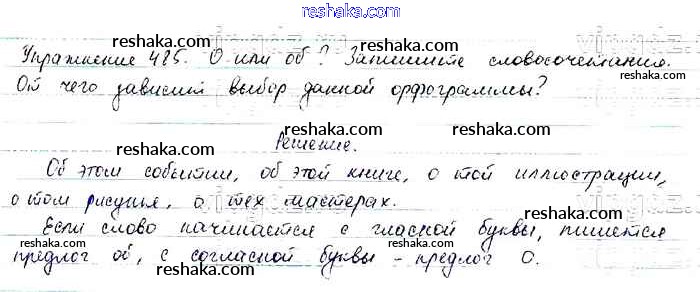 reshaka.com
Упражнение 485. О или об? Запишите словосочетания.
reshaka.com
reshaka.com
От чего зависит выбор данной орфограммы?
reshaka.com
reshaka.com
reshaka.com
reshaka.com
Решение.
reshaka.com
Об этом событии, об этой книге, о той иллюстрации,
reshaka.com
о том рисунке, о тех мастерах.
reshaka.com
reshaka.com
Если слово начинается с гласной буквы, пишется
reshaka.com
reshaka.com
предлог об, с согласной буквы - предлог о.
reshaka.com